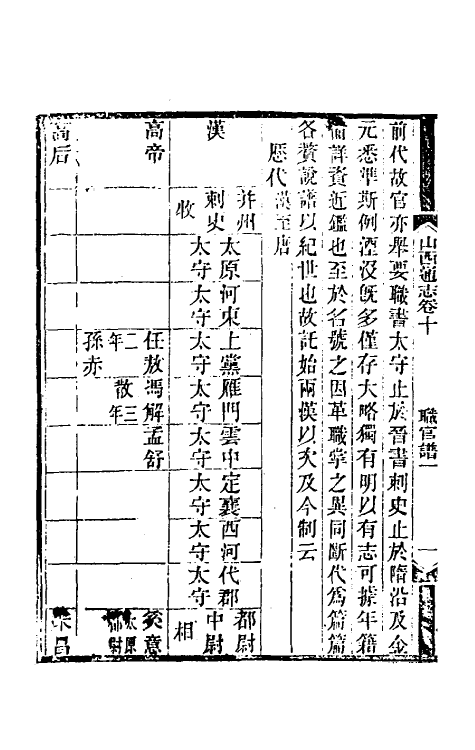 前代故官亦舉要職書太守止於晉書刺史止於隋沿及金
元悉準斯例湮没旣多僅存大略獨有明以有志可據年籍
備詳資近鑑也至於名號之因革職掌之異同斷代爲篇篇
各贅說譜以紀世也故託始兩漢以次及今制云
歷代漢至唐
漢
并州刺史
牧
太原太守
河東太守
上黨太守
雁門太守
雲中太守
定襄太守
西河太守
代郡太守
都尉
中尉
相
高帝
任敖
二年
孫赤
馮解散
三年
孟舒
奚意
太原
都尉
高后
山西通志卷十
職官譜一
一